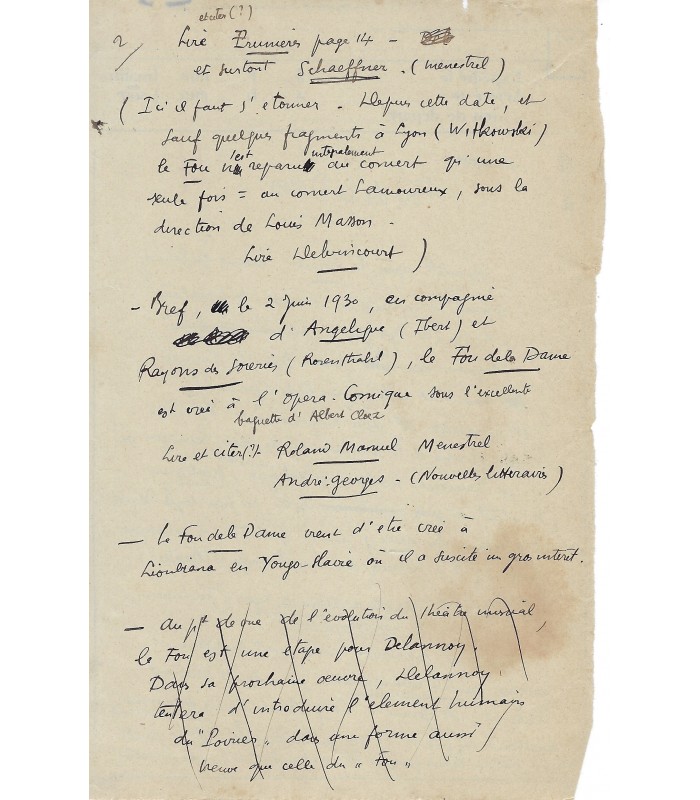 et citer (?)
2/ Lire Prunières page 14 -
et surtout Schaeffner. (Menestrel)
( Ici il faut s'etonner. Depuis cette date, et
sauf quelques fragments à Lyon (Witkowski)
le Fou n'est reparu intégralement au concert qu'une
seule fois = au concert Lamoureux, sous la
direction de Louis Masson -
Lire Delvincourt )
- Bref, le 2 Juin 1930, en compagnie
d'Angelique (Ibert) et
Rayons des Soieries (Rosenthal), le Fou de la Dame
est créé à l'Opera-Comique sous l'excellente
baguette d'Albert
Lire et citer (?) Roland Manuel Menestrel
André-Georges - (Nouvelles litteraires)
- Le Fou de la Dame vient d'etre créé à
Lioubliana en Yougo-Slavie où il a suscité un gros interet.
- Au pt de vue de l'evolution du théâtre musical,
le Fou est une etape pour Delannoy.
Dans sa prochaine oeuvre, Delannoy
tentera d'introduire l'element humain
du "Poirier" dans une forme aussi
neuve que celle du "Fou"